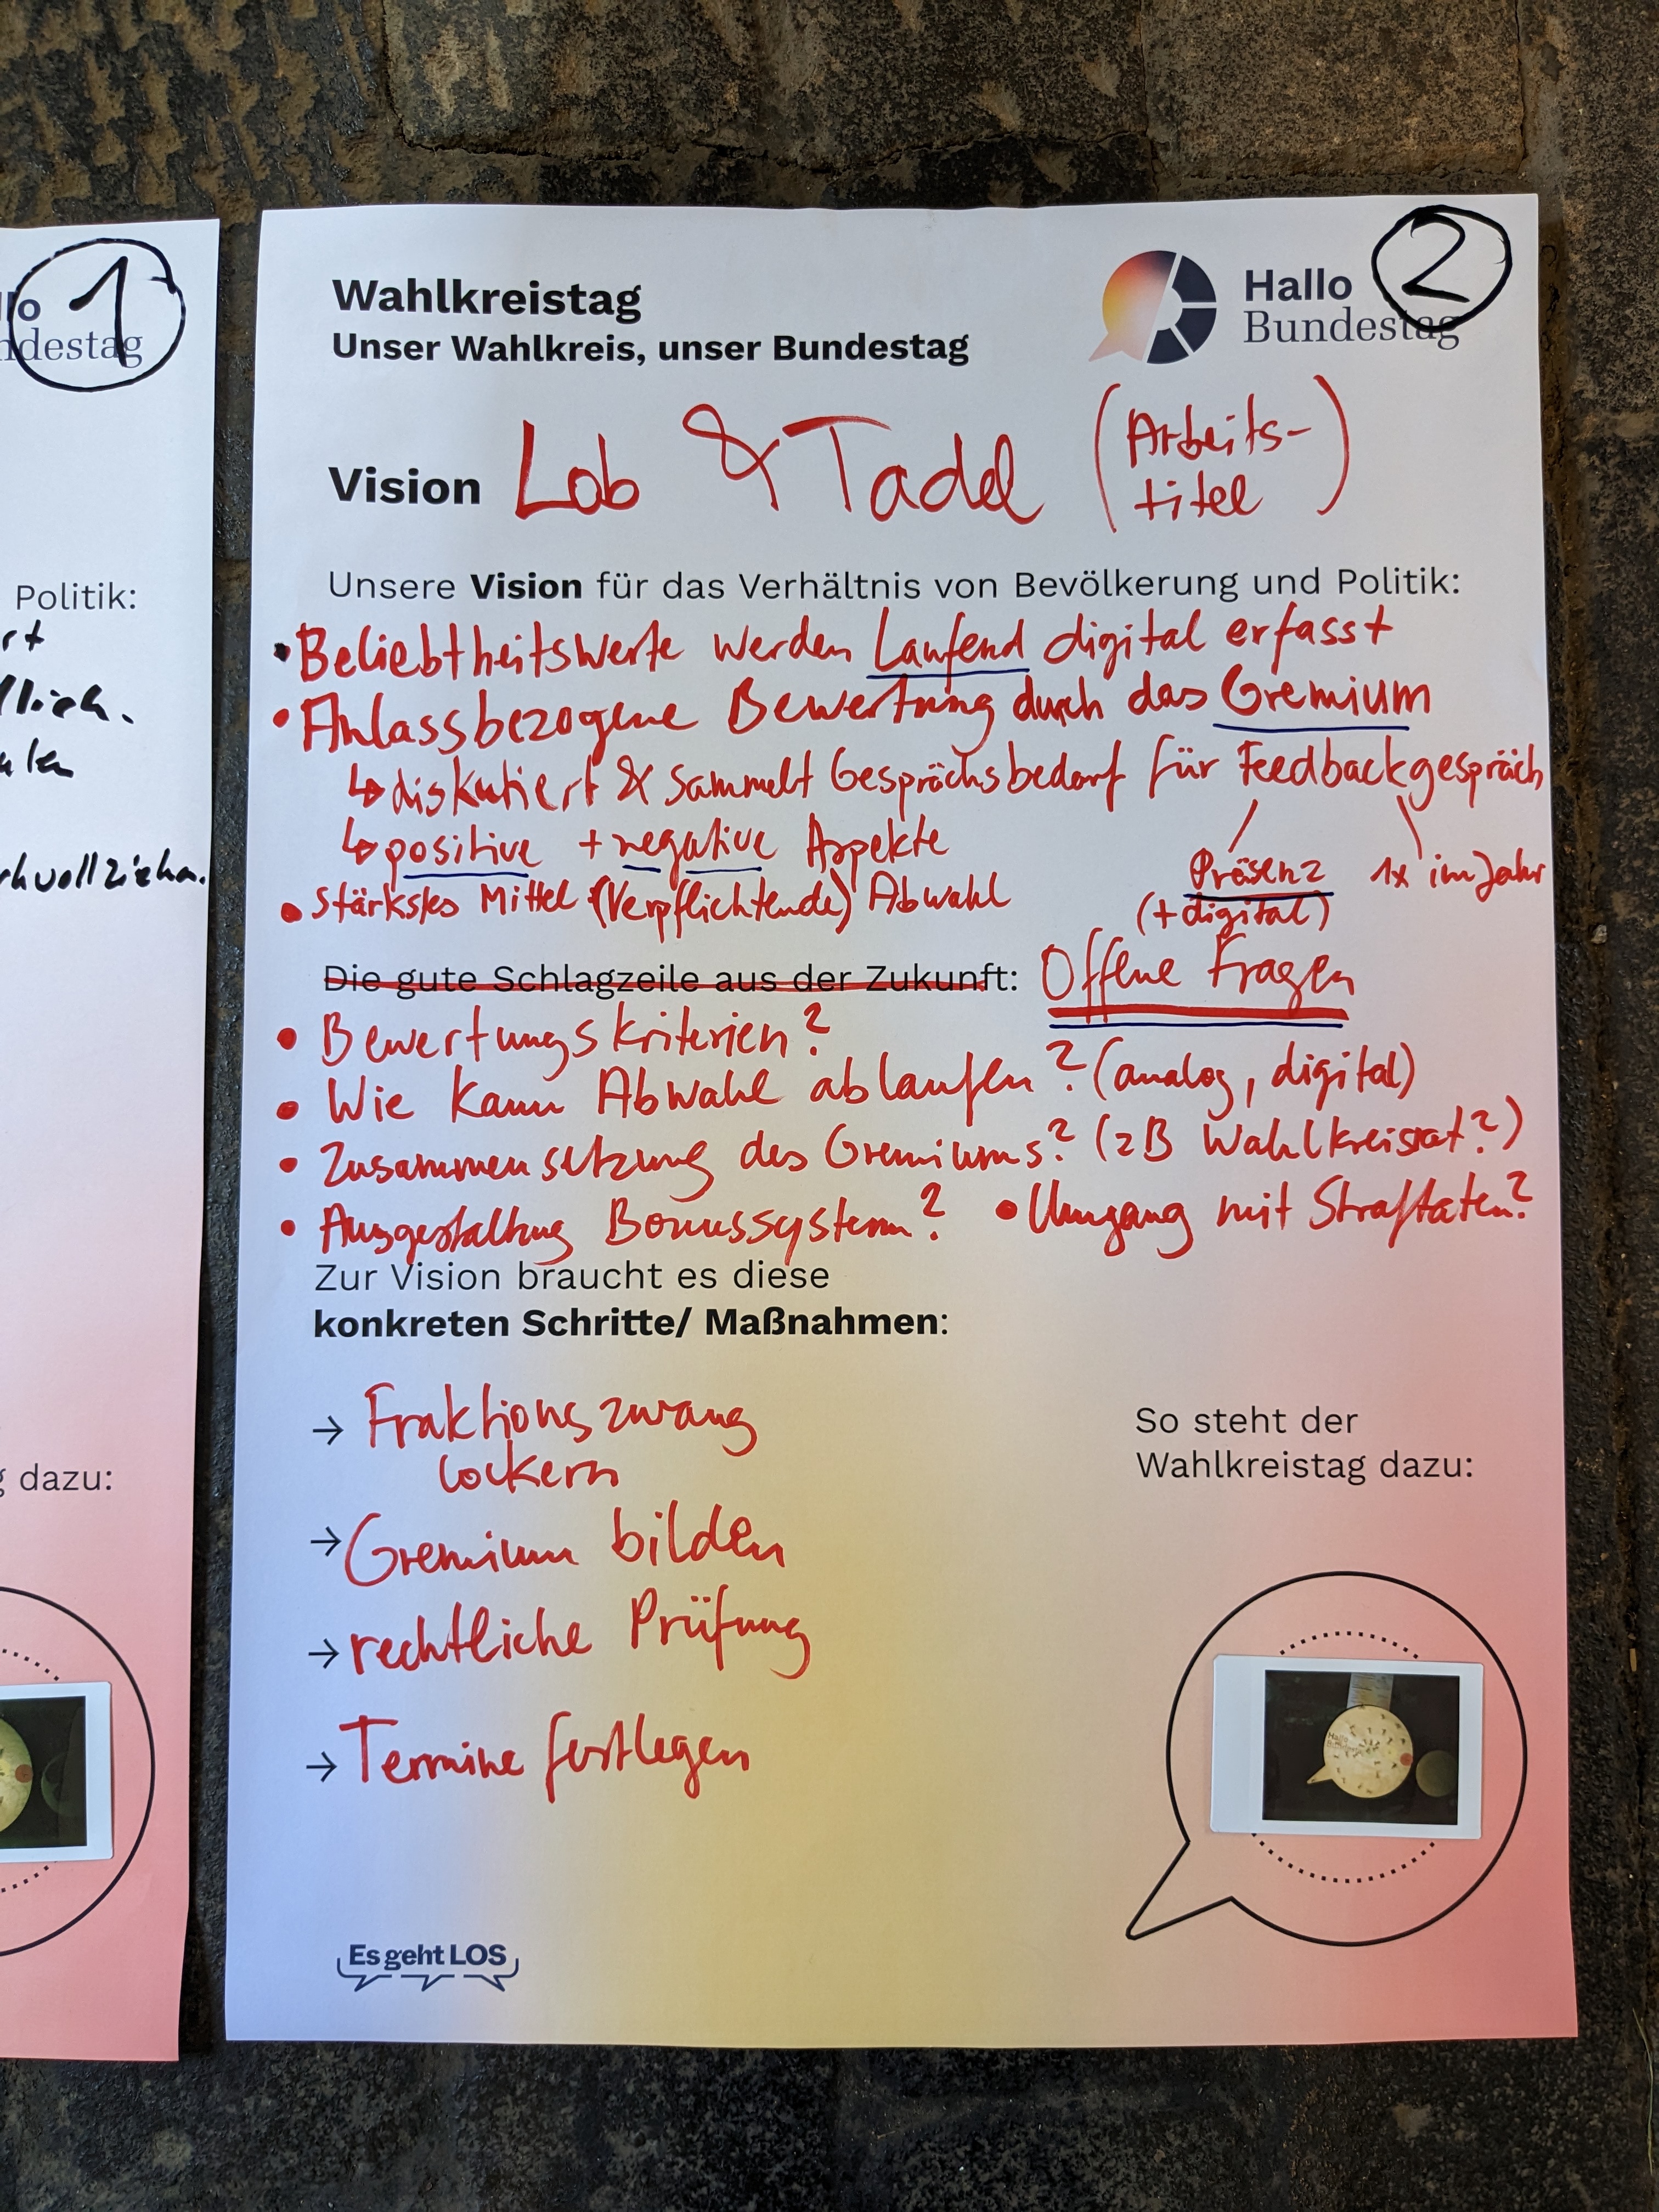 1
llo
ndestag
Politik:
rt
lich.
alen
rchvollziehen.
g dazu:
2
Wahlkreistag
Unser Wahlkreis, unser Bundestag
Hallo
Bundestag
Vision Lob & Tadel (Arbeits-
titel)
Unsere Vision für das Verhältnis von Bevölkerung und Politik:
• Beliebtheitswerte werden Laufend digital erfasst
• Anlassbezogene Bewertung durch das Gremium
↳ diskutiert & sammelt Gesprächsbedarf für Feedbackgespräch
↳ positive + negative Aspekte
Präsenz 1x im Jahr
(+digital)
• stärkstes Mittel (Verpflichtende) Abwahl
Die gute Schlagzeile aus der Zukunft: Offene Fragen
• Bewertungskriterien?
• Wie kann Abwahl ablaufen? (analog, digital)
• Zusammensetzung des Gremiums? (zB Wahlkreisrat?)
• Ausgestaltung Bonussystem? • Umgang mit Straftaten?
Zur Vision braucht es diese
konkreten Schritte/ Maßnahmen:
→ Fraktionszwang
lockern
→ Gremium bilden
→ rechtliche Prüfung
→ Termine festlegen
So steht der
Wahlkreistag dazu:
Hallo
Bundestag
Es geht LOS